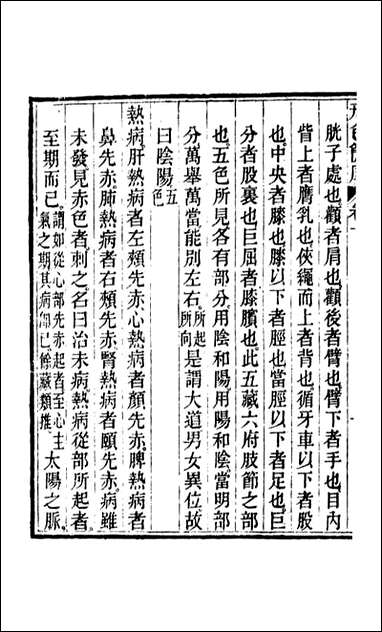 形色簡摩 卷一
胱子處也顴者肩也顴後者臂也臂下者手也目內
眥上者膺乳也俠繩而上者背也循牙車以下者股
也中央者膝也膝以下者脛也當脛以下者足也巨
分者股裏也巨屈者膝臏也此五藏六府肢節之部
也五色所見各有部分用陰和陽用陽和陰當明部
分萬舉萬當能別左右所起所向是謂大道男女異位故
曰陰陽五色
熱病肝熱病者左頰先赤心熱病者顏先赤脾熱病者
鼻先赤肺熱病者右頰先赤腎熱病者頤先赤病雖
未發見赤色者刺之名曰治未病熱病從部所起者
至期而已謂如從心部先赤起者至心主氣之期其病卽已餘藏類推太陽之脈